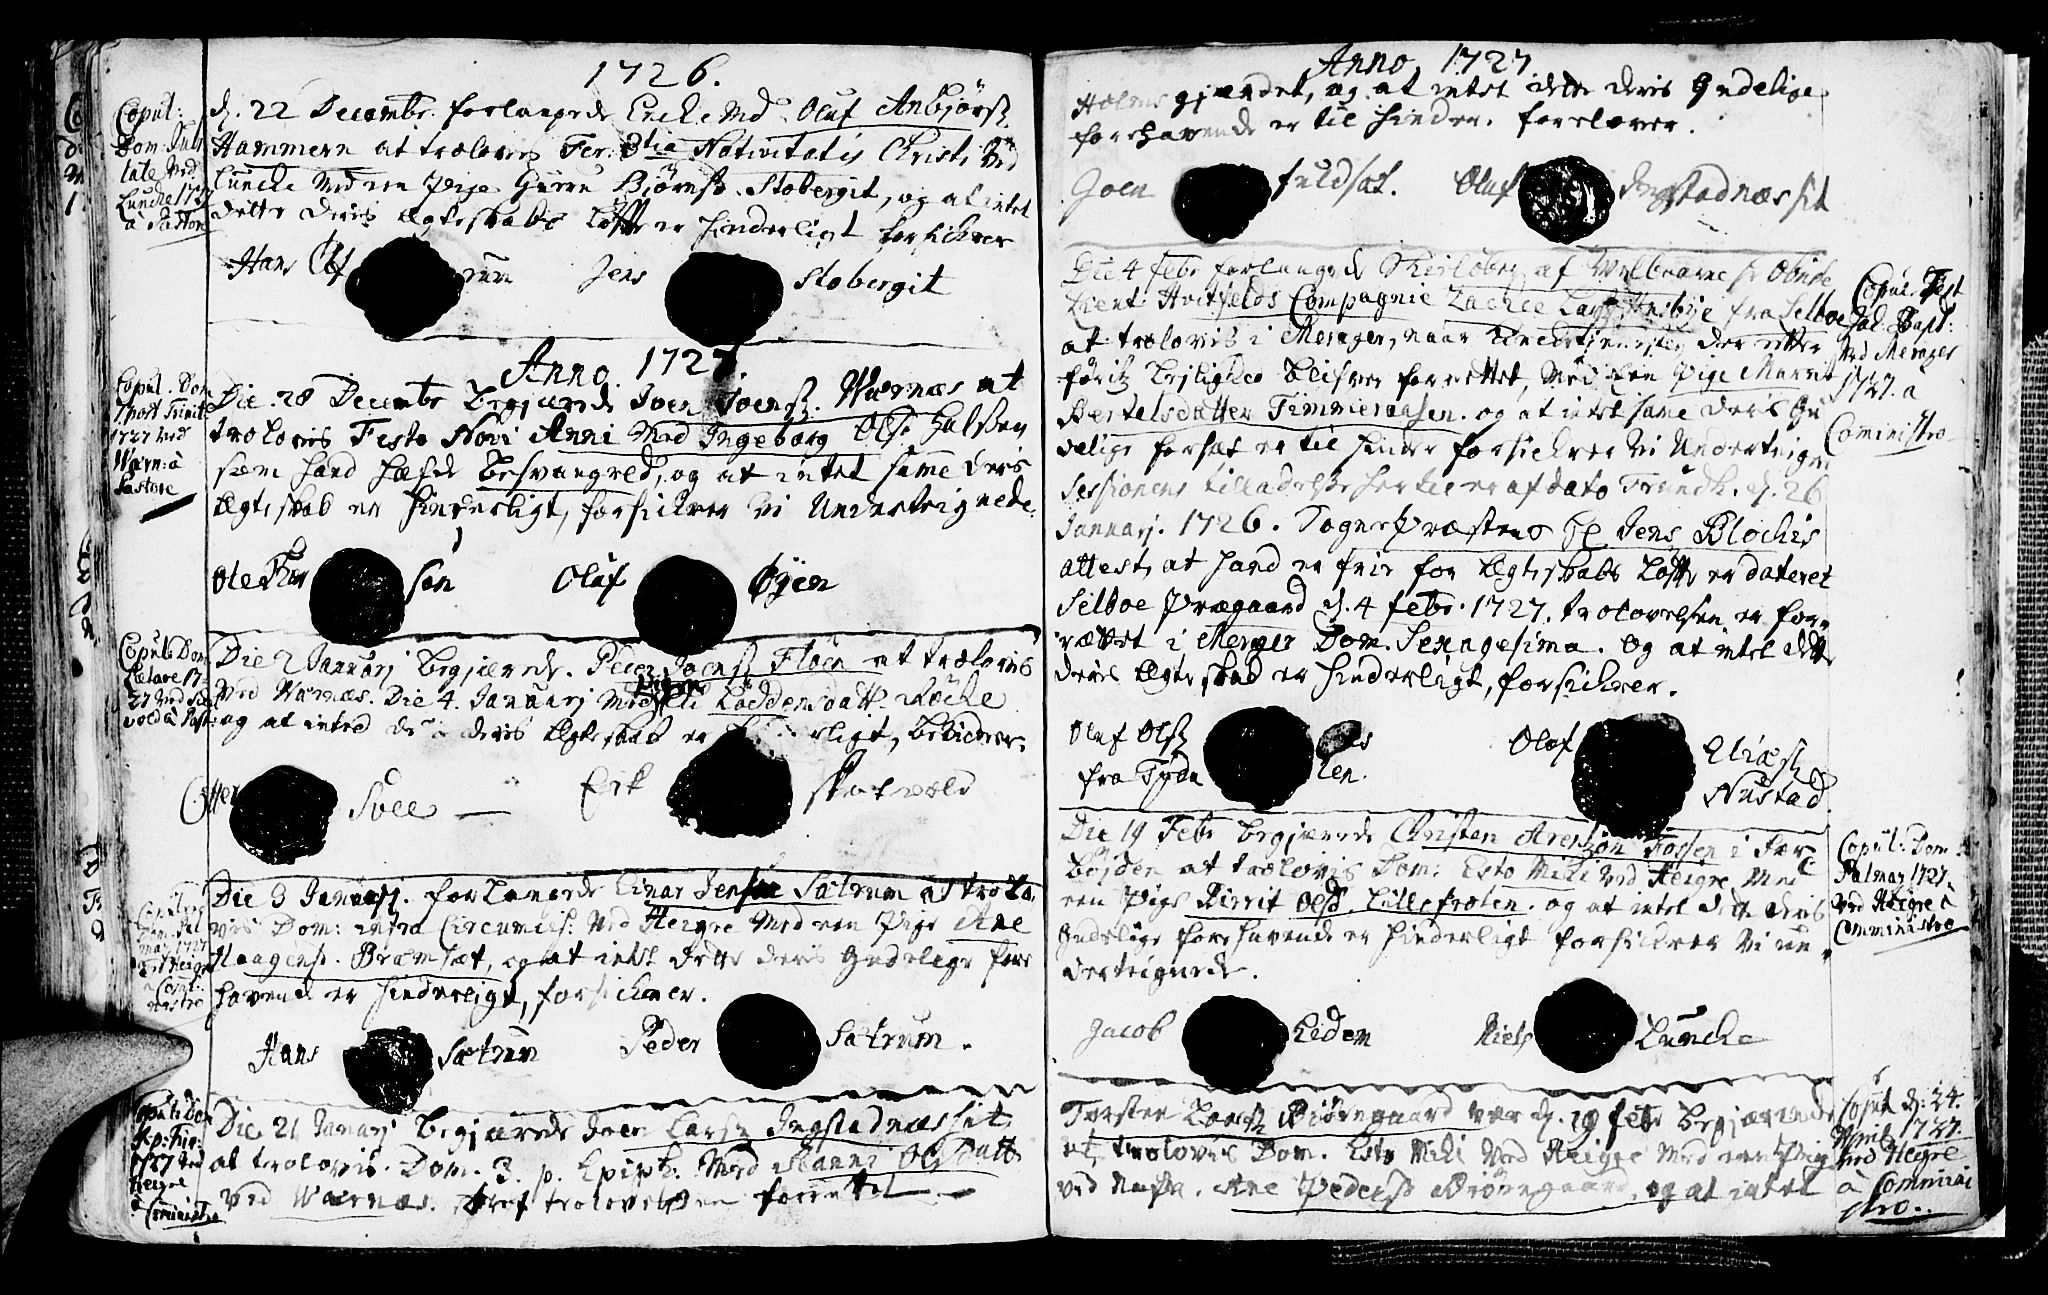 1726.
Copul:
Dom: Jubi
late Ved
Luncke 1727
à Pastore
d. 22 Decembr. forlangede Encke Md Oluf Anbjörsß
Hammern at trolovis Fer: 3tia Nativitatis Christi Ved
Luncke Med een Pige Guru Biörnsd. Stobergit, og at intet
dette deris Egteskabs Löffte er hinderligt forsickrer
Hans Ols rum Jens Stobergit
Anno 1727.
Copul. Dom
post Trinit
1727 Ved
Wærn: à
Pastore
Die 28 Decembr begjærede Joen Joensß. Wærnæs at
trolovis Festo Novi Anni Med Ingeborg Olsd Halssen
som hand hafde besvangred, og at intet same deris
Egteskab er hinderligt, forsickrer Vi Underteignede.
Ole sön Oluf Öyen
Copul: Dom
Lætare 17
27 Ved
vold à Past:
Die 2 Januarj begjærede Peder Joensß Floen at trolovis
Ved Wærnæs. Die 4. Januarj Med Loddensdatt. Röcke
og at inted dette deris Egteskab er hinderligt, bevidner.
Svee Erik Skatvold
Copul:
Dom: Pal
mar 1727
Ved Heigre
à Comi
nistro
Die 3 Januarj. forlangede Einar Jensön Sætrum at trolo,
vis Dom: intra Circumcis: Ved Heigre Med een Pige Ane
Haagensd. Bræmsæt, og at intet dette deris Gudelige fore
havende er hinderligt, forsickrer.
Hans Sætrum Peder Sætrum.
Copul: Dom
4 p: Trin:
1727 Ved
Heigre
à Cominstro
Die 21 Januarj begjærede Joen Larsß Ingstadnæssit
at trolovis. Dom. 3. p. Epiph: Med Olsdatt
ved Wærnæs. blef trolovelsen forrettet
Anno 1727
Holms gjærdet, og at intet dette deris Gudelige
forehavende er til hinder. forelover.
Joen fuldsæt. Oluf Ingstadnæssit
Die 4 febr forlangede af Welbaarne Hr Obriste
Lieut: Hvitfelds Compagnie Zachce Larsß fra Selboe
at trolovis i Merager, naar der efter
foritz Leylighed blifver forrettet, Med een Pige Marit
Bertelsdatter Timmeraasen. og at intet same deris Gu
delige forsæt er til hinder forsickrer Vi Underteigne
Sessionens tilladelse hertil er af dato Trundh. d. 26
Januarj. 1726. SognePræstens Hr Jens Blochis
attest, at hand er frie for Egteskabs Löffte er dateret
Selboe Præegaard d. 4 febr. 1727. trolovelsen er for,
rættet i Merager Dom. Sexagesima. Og at intet dette
deris Egteskab er hinderligt, forsickrer.
Copul. Fest
Joh. Bapt:
Ved Merager
1727. à
Cominstro
Oluf Olsß
fra Tyda len. Oluf Eliæsß
Nustad
Die 19 Febr begjærede Christen Aresßön Fossen i Fær
böyden at trolovis Dom: Esto Mihi Ved Heigre Med
een Pige Kirrit Olsd. Lillefloten. og at intet dette deris
Gudelige forehavende er hinderligt forsickrer Vi un,
derteignede.
Copul: Dom
Palmar 1727.
Ved Heigre à
Comministro
Jacob Eidem Niels Luncke
Torsten Larsß Biörngaard var d. 19 febr begjærende
at trolovis Dom. Esto Mihi Ved Heigre Med een Pige
ved Nafn. Ane Pedersd Biörngaard, og at intet
Copul d: 24.
April. 1727.
Ved Heigre
à Commini
stro.